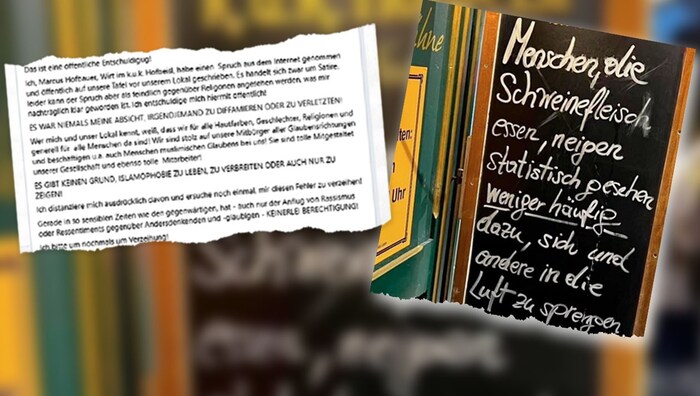 Das ist eine öffentliche Entschuldigug!
Ich, Marcus Hofbauer, Wirt im k.u.k. Hofbeisl, habe einen Spruch aus dem Internet genommen
und öffentlich auf unsere Tafel vor unserem Lokal geschrieben. Es handelt sich zwar um Satire,
leider kann der Spruch aber als feindlich gegenüber Religionen angesehen werden, was mir
nachträglich klar geworden ist. Ich entschuldige mich hiermit öffentlich!
ES WAR NIEMALS MEINE ABSICHT, IRGENDJEMAND ZU DIFFAMIEREN ODER ZU VERLETZTEN!
Wer mich und unser Lokal kennt, weiß, dass wir für alle Hautfarben, Geschlechter, Religionen und
generell für alle Menschen da sind! Wir sind stolz auf unsere Mitbürger aller Glaubensrichtungen
und beschäftigen u.a. auch Menschen muslimischen Glaubens bei uns! Sie sind tolle Mitgestalter
unserer Gesellschaft und ebenso tolle Mitarbeiter!
ES GIBT KEINEN GRUND, ISLAMOPHOBIE ZU LEBEN, ZU VERBREITEN ODER AUCH NUR ZU
ZEIGEN!
Ich distanziere mich ausdrücklich davon und ersuche noch einmal, mir diesen Fehler zu verzeihen!
Gerade in so sensiblen Zeiten wie den gegenwärtigen, hat - auch nur der Anflug von Rassismus
oder Ressentiments gegenüber Andersdenkenden und -gläubigen - KEINERLEI BERECHTIGUNG!
Ich bitte um nochmals um Verzeihung!
Menschen, die
Schweinefleisch
essen, neigen
statistisch gesehen
weniger häufig
dazu, sich und
andere in die
Luft zu sprengen
Uhr